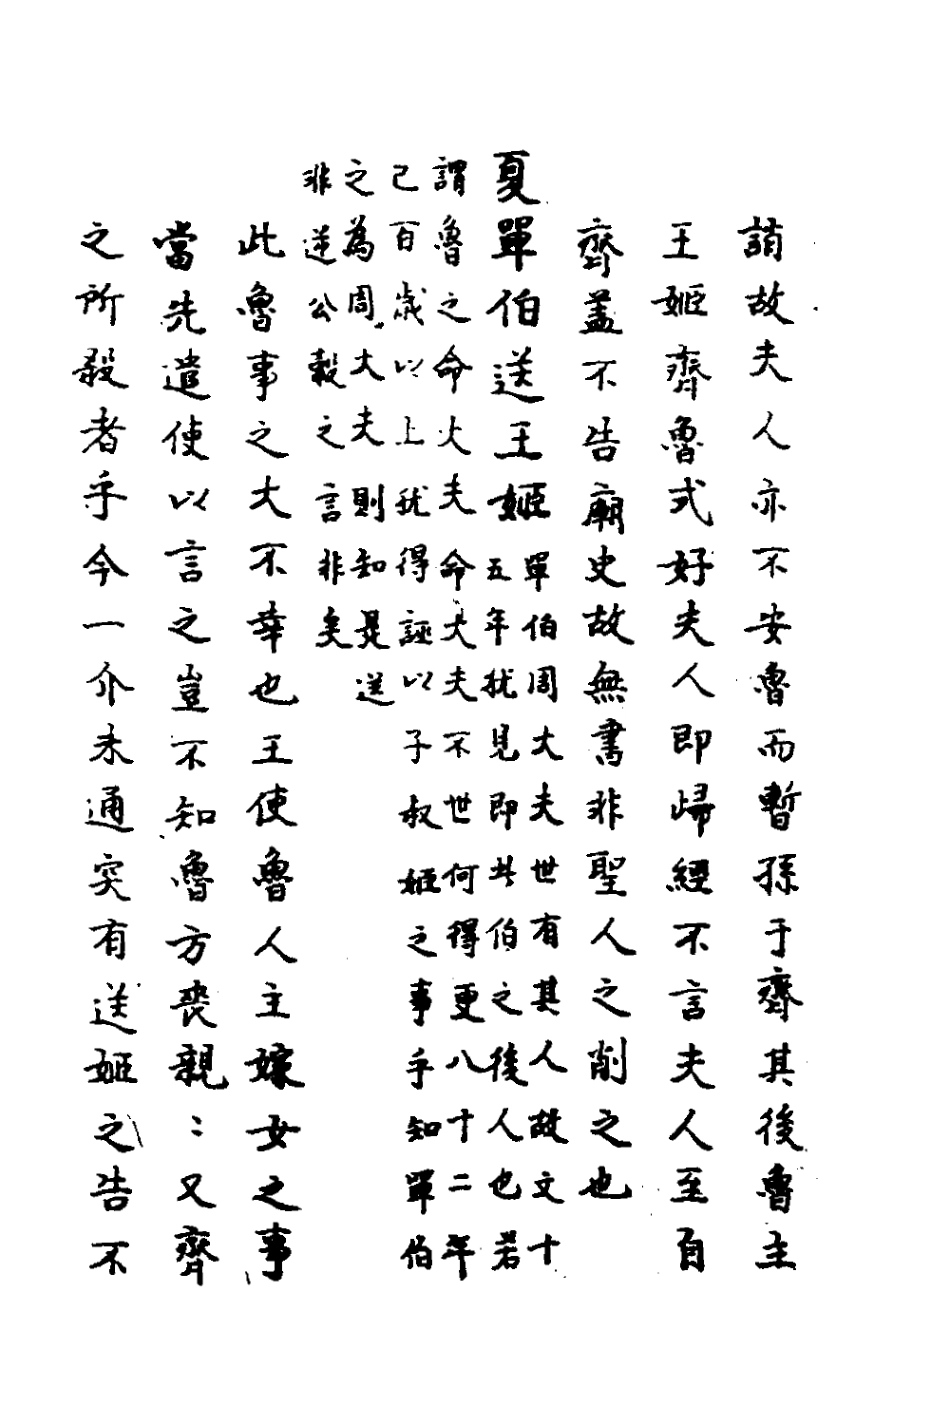 誚故夫人亦不安魯而暫孫于齊其後魯主
王姬齊魯式好夫人即歸經不言夫人至自
齊蓋不告廟史故無書非聖人之削之也
夏單伯送王姬
單伯周大夫世有其人故文十
五年犹見即此伯之後人也若
謂魯之命大夫命大夫不世何得更八十二年
已百歲以上犹得誣以子叔姬之事乎知單伯
之為周大夫則知是送
非逆公穀之言非矣
此魯事之大不幸也王使魯人主嫁女之事
當先遣使以言之豈不知魯方喪親〻又齊
之所殺者乎今一介未通突有送姬之告不